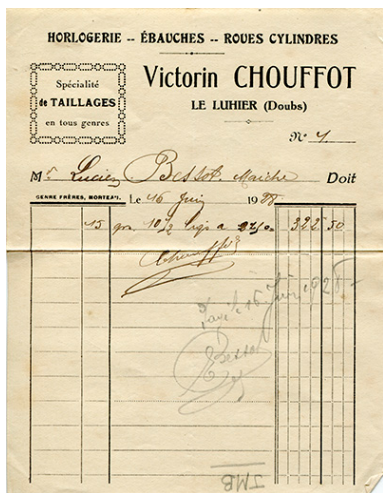 HORLOGERIE -- ÉBAUCHES -- ROUES CYLINDRES
Spécialité
de TAILLAGES
en tous genres
Victorin CHOUFFOT
LE LUHIER (Doubs)
N° 1
Mr Lucien Bessot Maiche Doit
GENRE FRÈRES, MORTEAU. Le 16 Juin 1928
15 gros 10/2 à 322 50
Chouffot
16 Juin 1928
Bessot
JMB